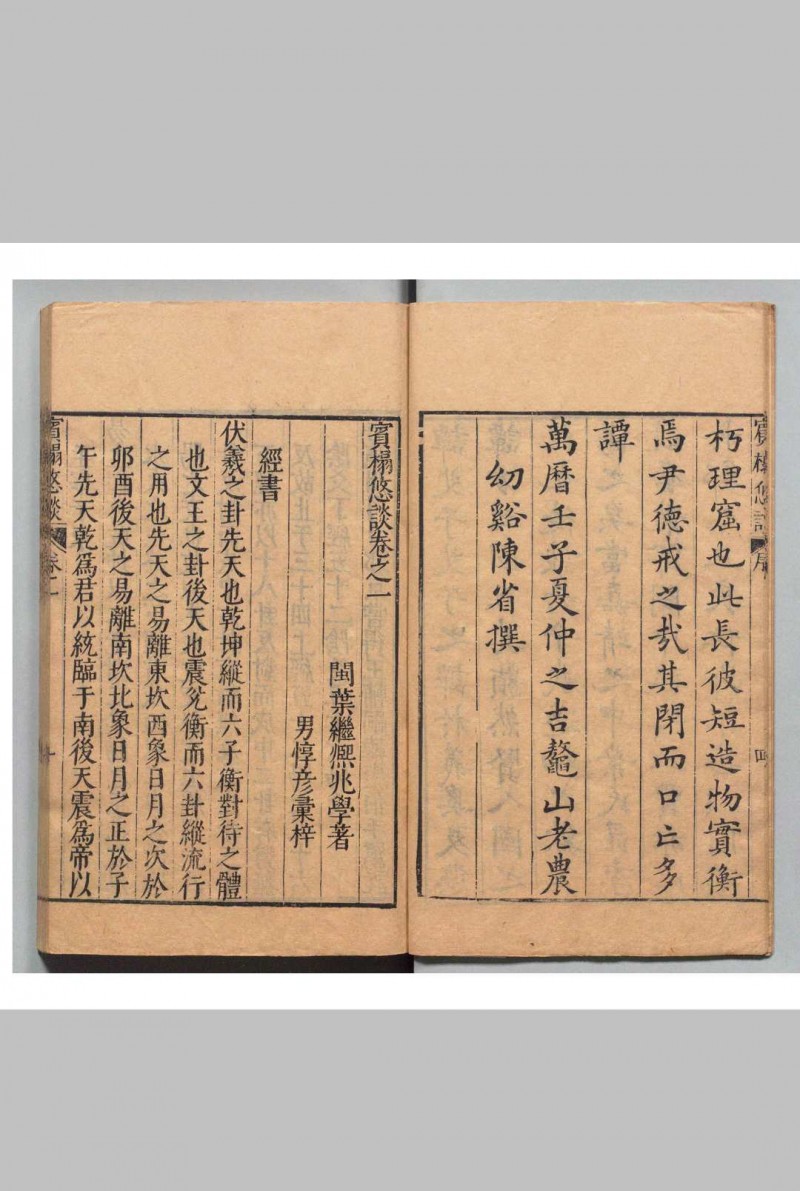 朽理窟也此長彼短造物實衡
焉尹德戒之㦲其閉而口亡多
譚
萬曆壬子夏仲之吉鼇山老農
幼谿陳省撰
賓榻悠談卷之一
閩葉繼熈兆學著
男惇彥彙梓
經書
伏羲之卦先天也乾坤縱而六子衡對待之體
也文王之卦後天也震兌衡而六卦縱流行
之用也先天之易離東坎西象日月之次於
卯酉後天之易離南坎北象日月之正於子
午先天乾爲君以統臨于南後天震爲帝以
賓榻悠談 卷一